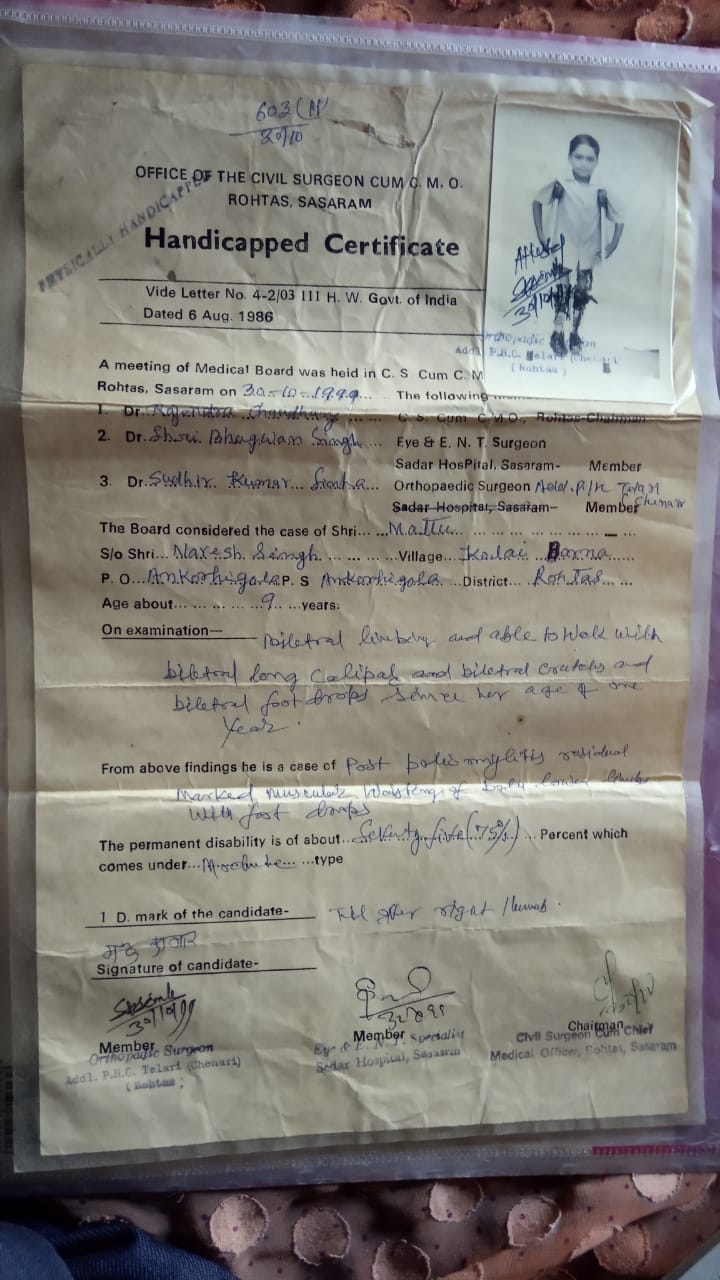 603 (A)
30/10
OFFICE OF THE CIVIL SURGEON CUM C. M. O.
ROHTAS, SASARAM
PHYSICALLY HANDICAPPED
Handicapped Certificate
Vide Letter No. 4-2/03 111 H. W. Govt. of India
Dated 6 Aug. 1986
Attested
30/10/99
Orthopadic
Addl. P.H.C. Telari (Chenari)
(Rohtas)
A meeting of Medical Board was held in C. S Cum C. M
Rohtas, Sasaram on 30-10-1999... The following
1. Dr. Rajendra Chaudhary ... ... C. S. Cum C.M.O., Rohtas-Chairman
2. Dr. Shri Bhagwan Singh ... Eye & E. N. T. Surgeon
Sadar HosPital, Sasaram- Member
3. Dr. Sudhir Kumar... Sinha... Orthopaedic Surgeon Addl. P.H.C Telari
Sadar Hospital, Sasaram- Member Chenari
The Board considered the case of Shri... ...Mattu... ... ... ... ... ... ...
S/o Shri... Naresh Singh ... ... ... Village... Kalai Barna...
P. O... Ankorhigola P. S Ankorhigola ...District... Rohtas... ...
Age about... ... ... ...9... ...years:
On examination- and able to walk with
biletral long Calipar and biletral crutches and
biletral foot drops since her age of one
year.
From above findings he is a case of Post polio myelitis residual
Marked muscular Wasting of both lower limbs
with foot drops
The permanent disability is of about... Seventy five (75%)... Percent which
comes under... ...type
1 D. mark of the candidate- Til after right
Signature of candidate-
30/10/99
Member
Orthopadic Surgeon
Addl. P.H.C. Telari (Chenari)
(Rohtas)
Member
Eye & E. N. T. Specialist
Sadar Hospital, Sasaram
Chaitman
Civil Surgeon Cum Chief
Medical Officer, Rohtas, Sasaram